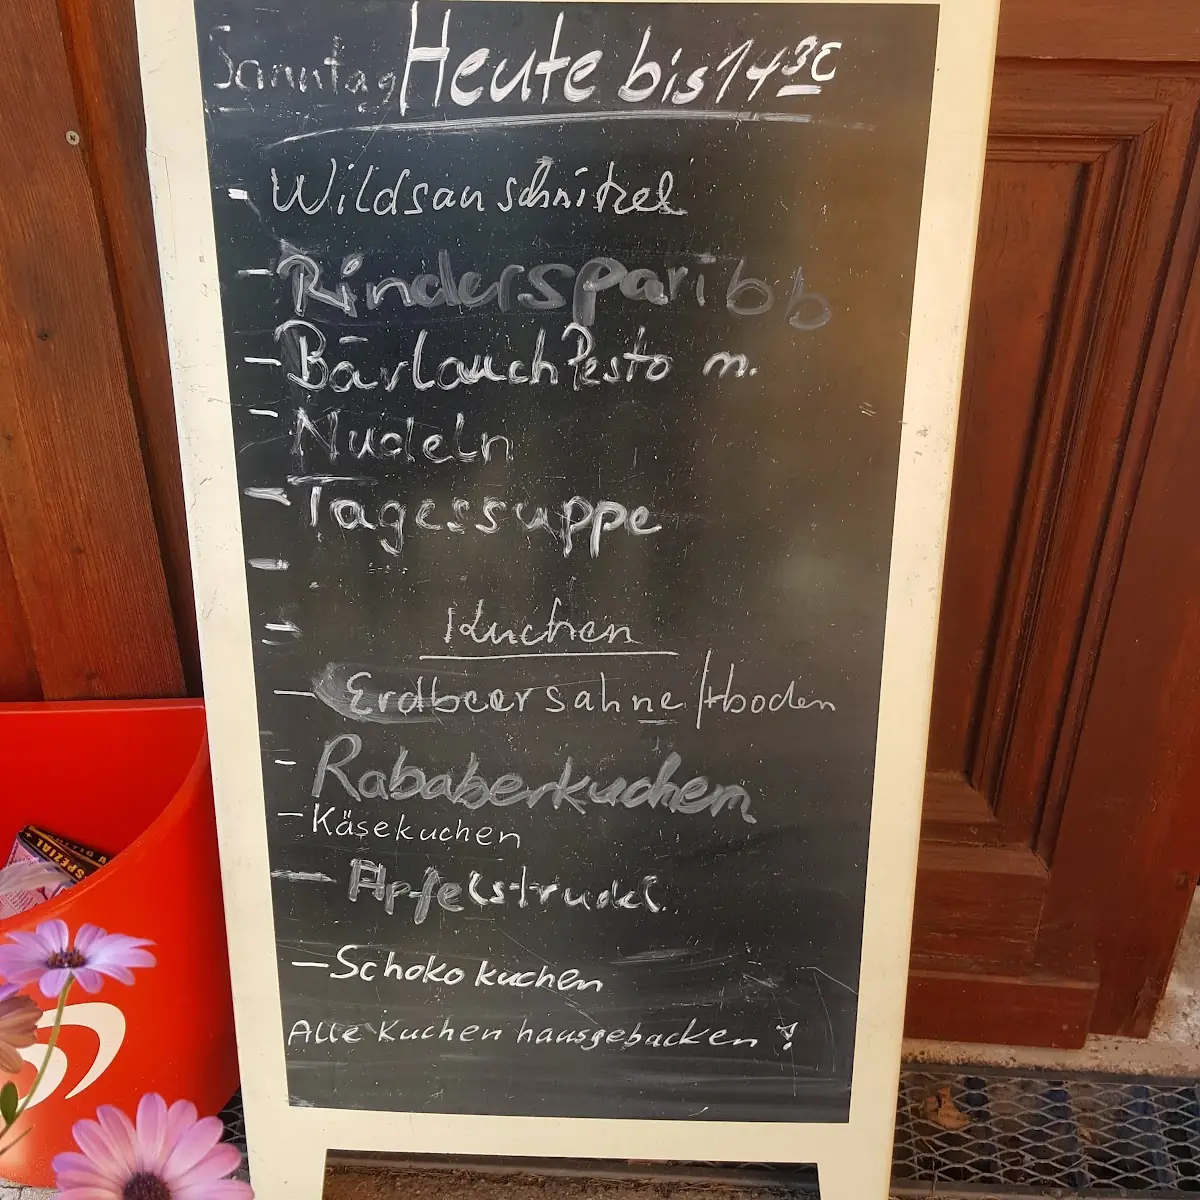 Sonntag Heute bis 14 30
- Wildsau schnitzel
- Rinderspar i bb
- Bärlauch Pesto m.
- Nudeln
- Tagessuppe
-
- Kuchen
- Erdbeersahne/+boden
- Rababerkuchen
- Käsekuchen
- Apfelstrudel
- Schoko kuchen
Alle Kuchen hausgebacken !
SPEZIAL